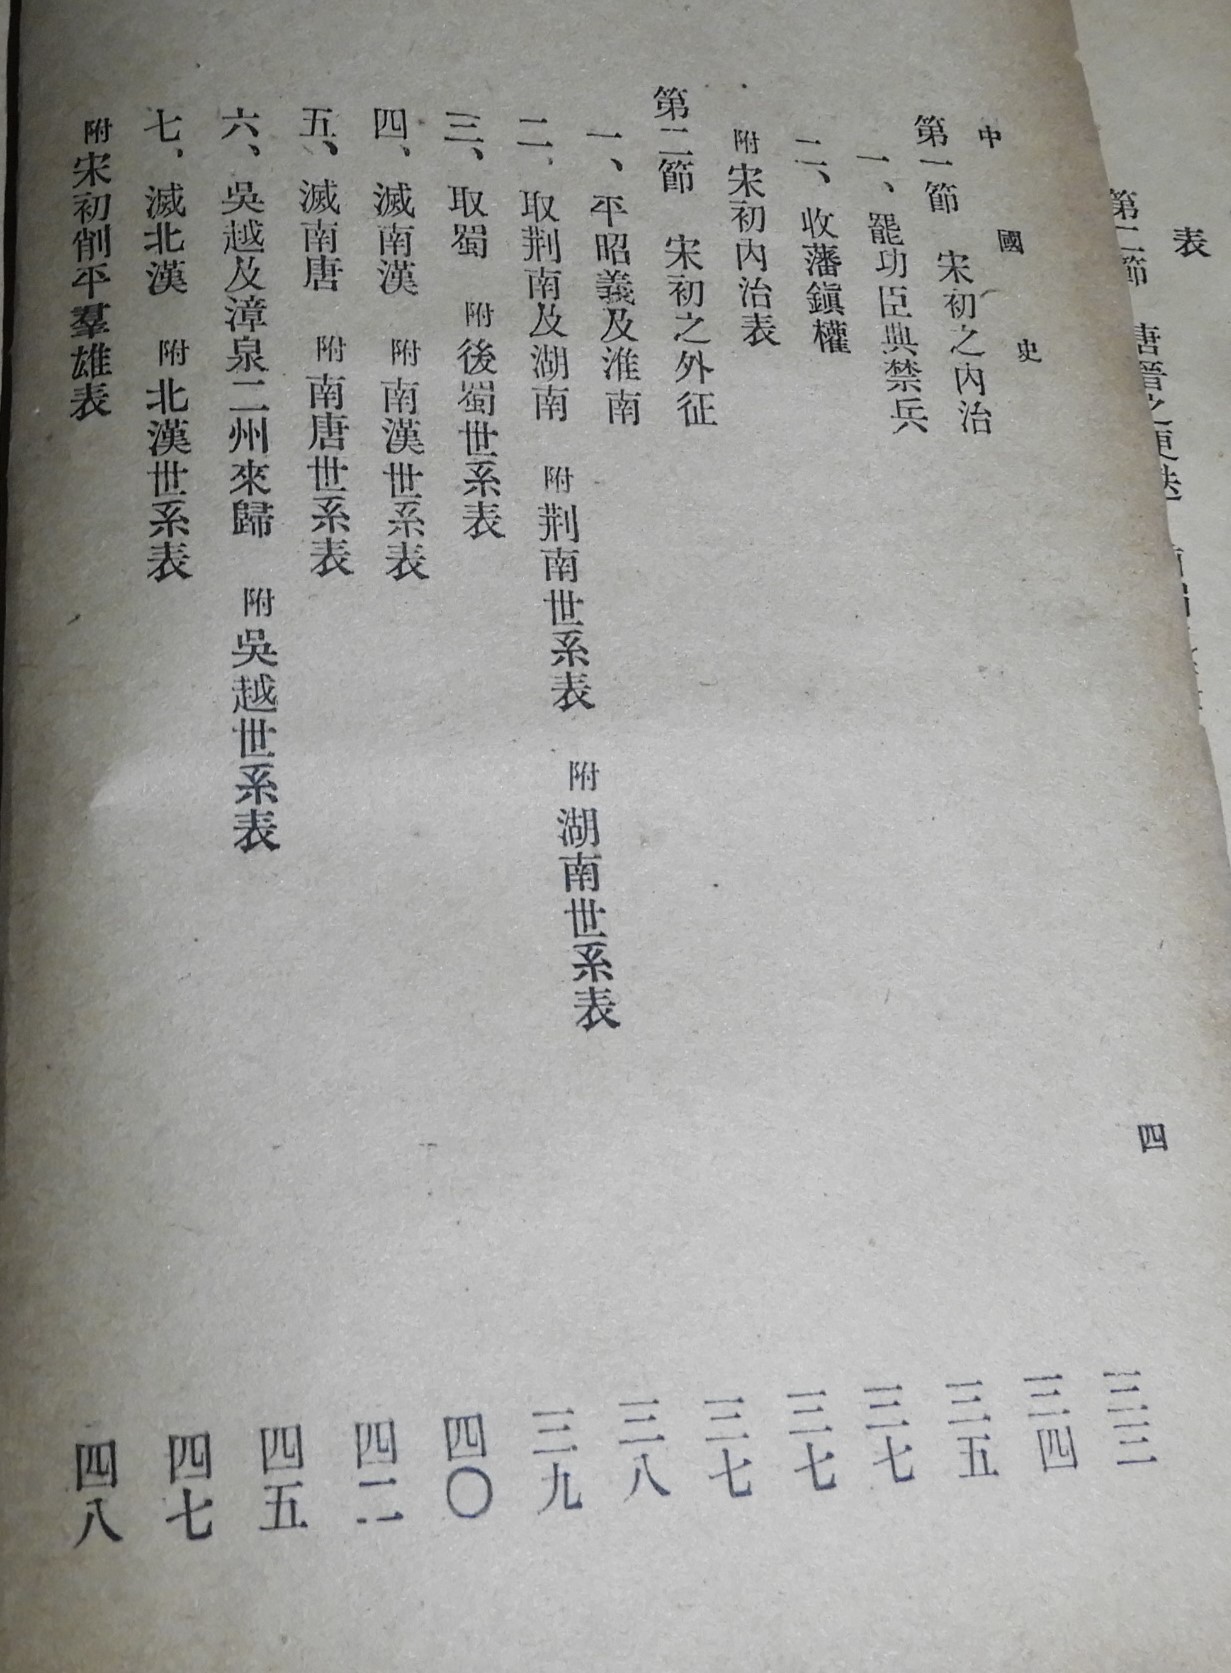 表
第二節 唐晉之更迭
中國史 四
第一節 宋初之內治 三三
一、罷功臣典禁兵 三四
二、收藩鎮權 三五
附宋初內治表 三七
第二節 宋初之外征 三七
一、平昭義及淮南 三七
二、取荆南及湖南 附荆南世系表 附湖南世系表 三八
三、取蜀 附後蜀世系表 三九
四、滅南漢 附南漢世系表 四〇
五、滅南唐 附南唐世系表 四二
六、吳越及漳泉二州來歸 附吳越世系表 四五
七、滅北漢 附北漢世系表 四七
附宋初削平羣雄表 四八